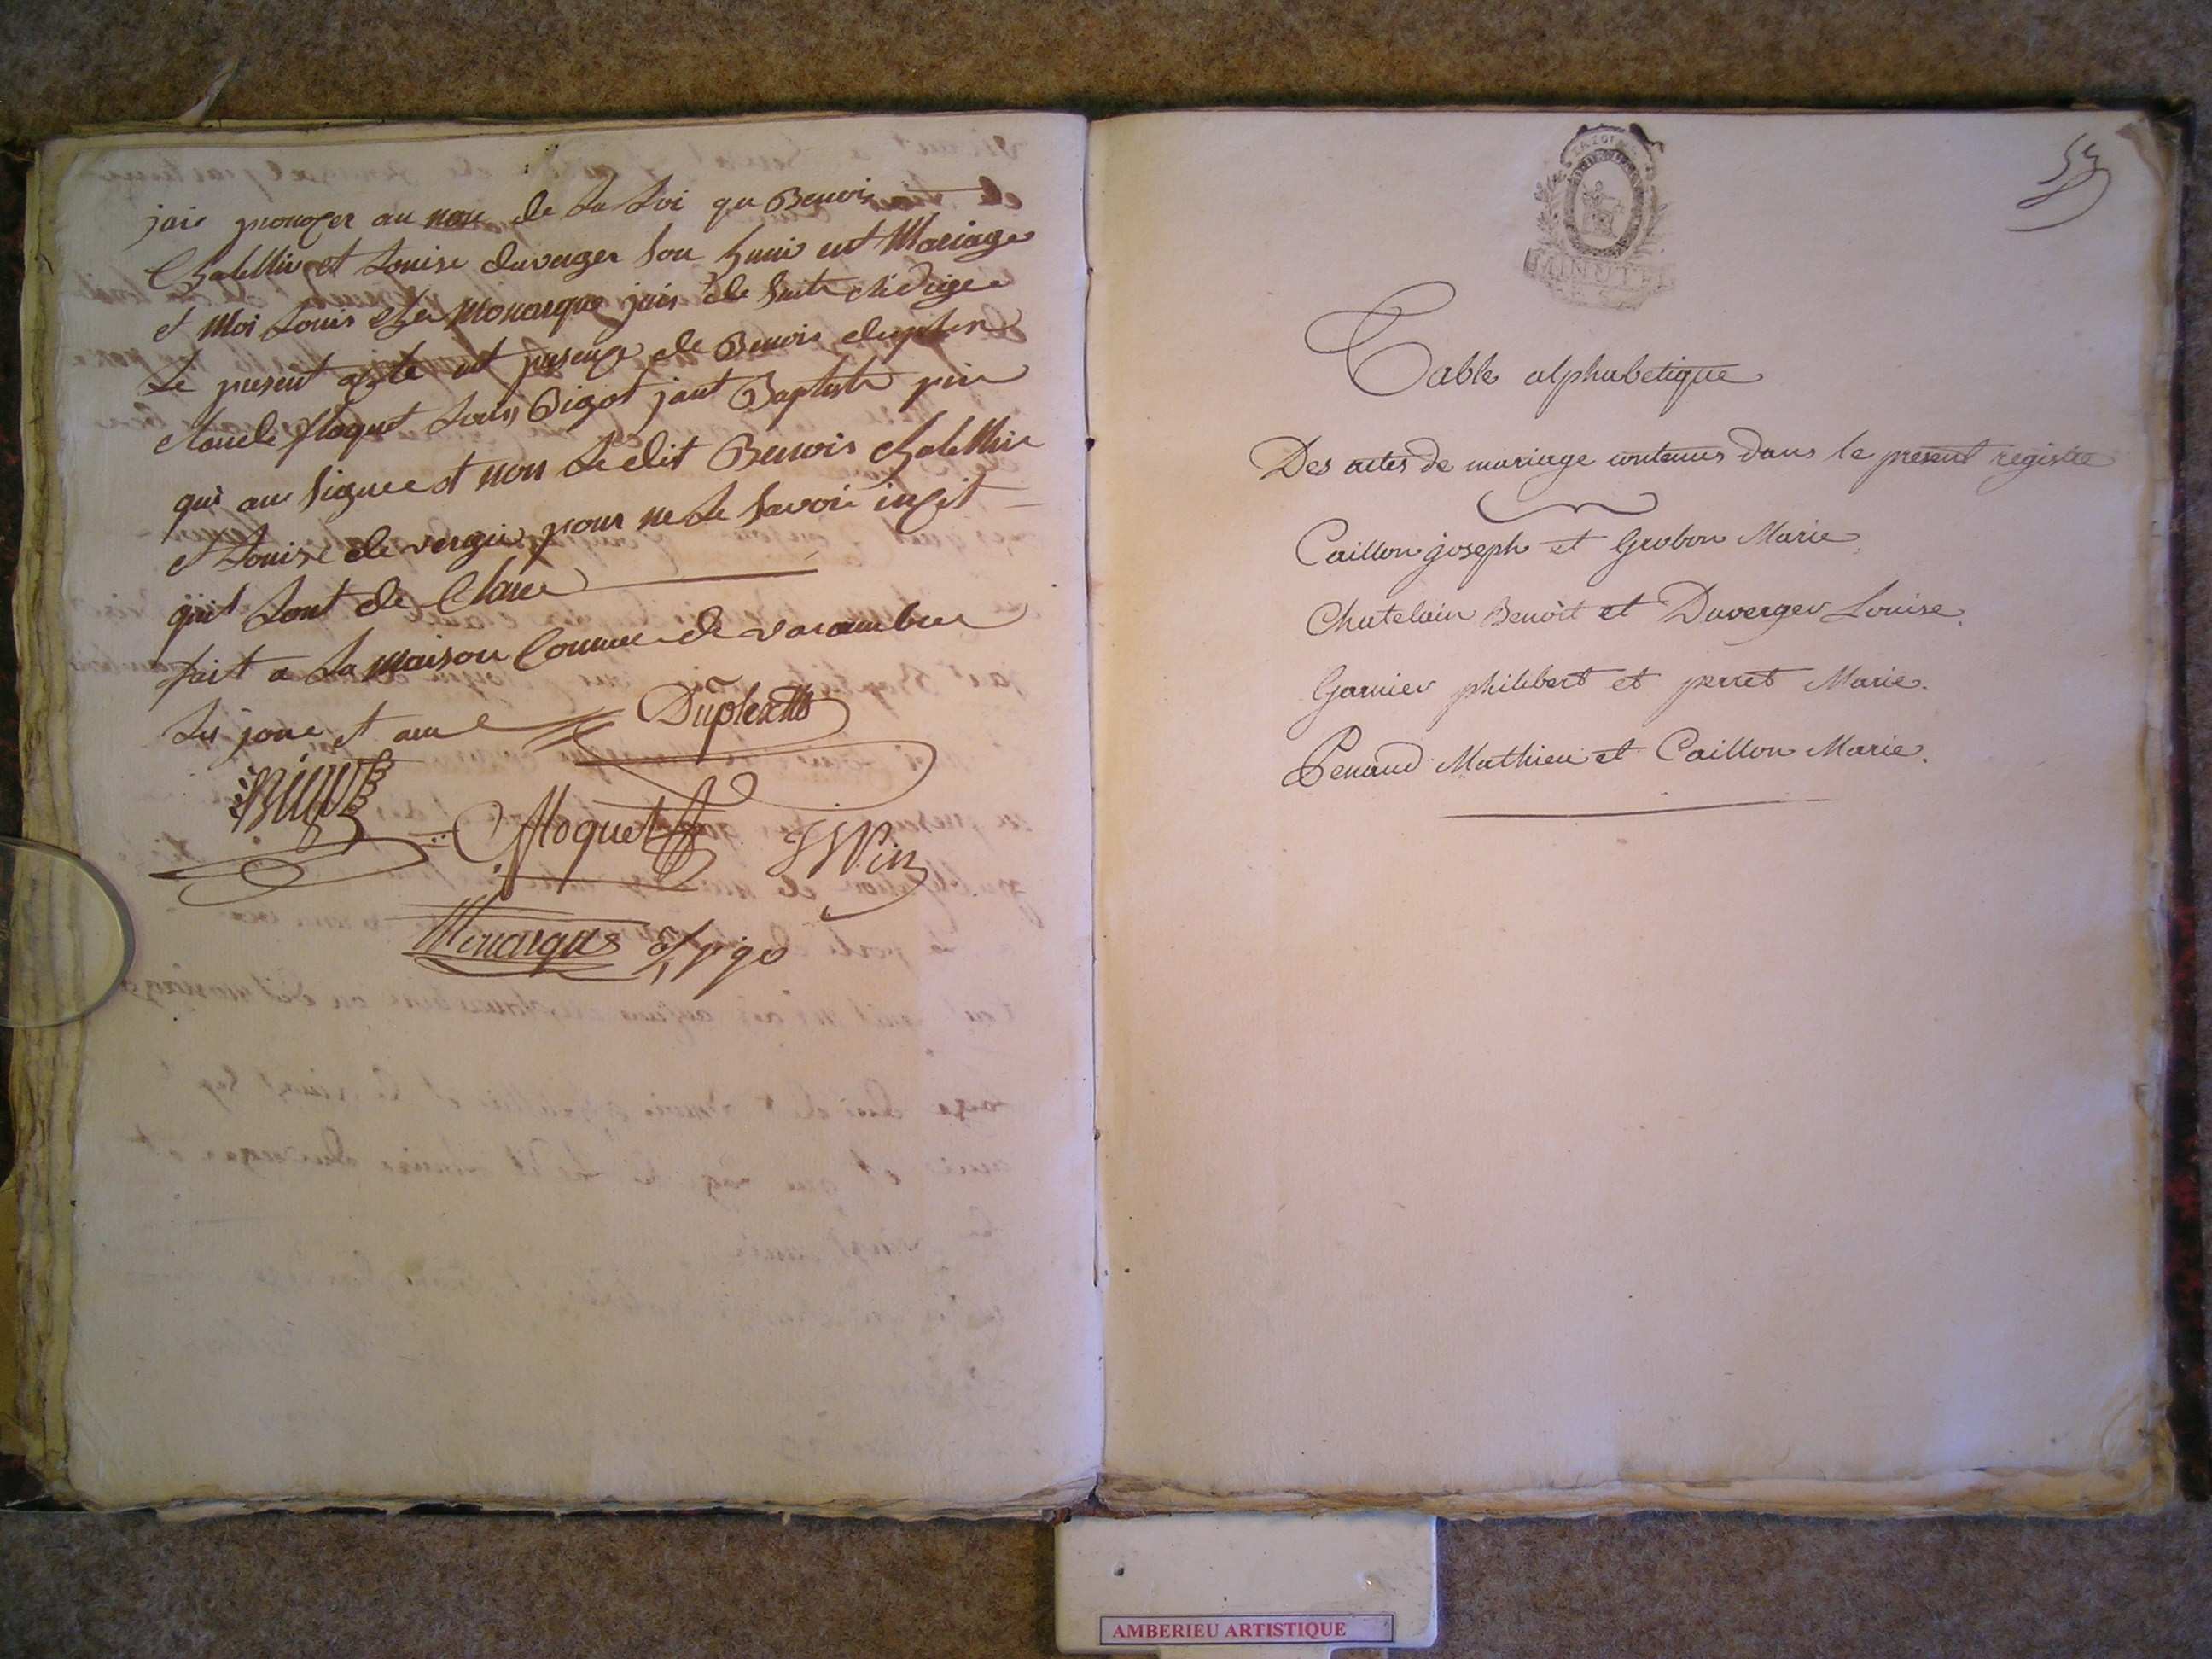 jaie pronoxer au nom de La Loi qu Benois
Chatellin et Louise duverger Son hunie ent Mariage
et Moi Louis monarque jais de Suite Rédige
Le present acte ent presence de Benois duplex
Claude floquet Louis Bigot jant Baptiste pin
qui on Signee et non Le dit Benois chatellin
et Louise de vergie pour ne Le Savoir
qui Sont de Claree
fait a La Maison Comune de varambon
Les jour et ane
Duplex
BIGOT
floquet
JBPin
Monarque of p go
53
LA LOI
MINUTE
Table alphabetique
Des actes de mariage contenus dans le present registre
Caillon joseph et Grobon Marie
Chatelain Benoit et Duverger Louise.
Garnier philibert et perret Marie.
Penaud Mathieu et Caillon Marie.
AMBERIEU ARTISTIQUE